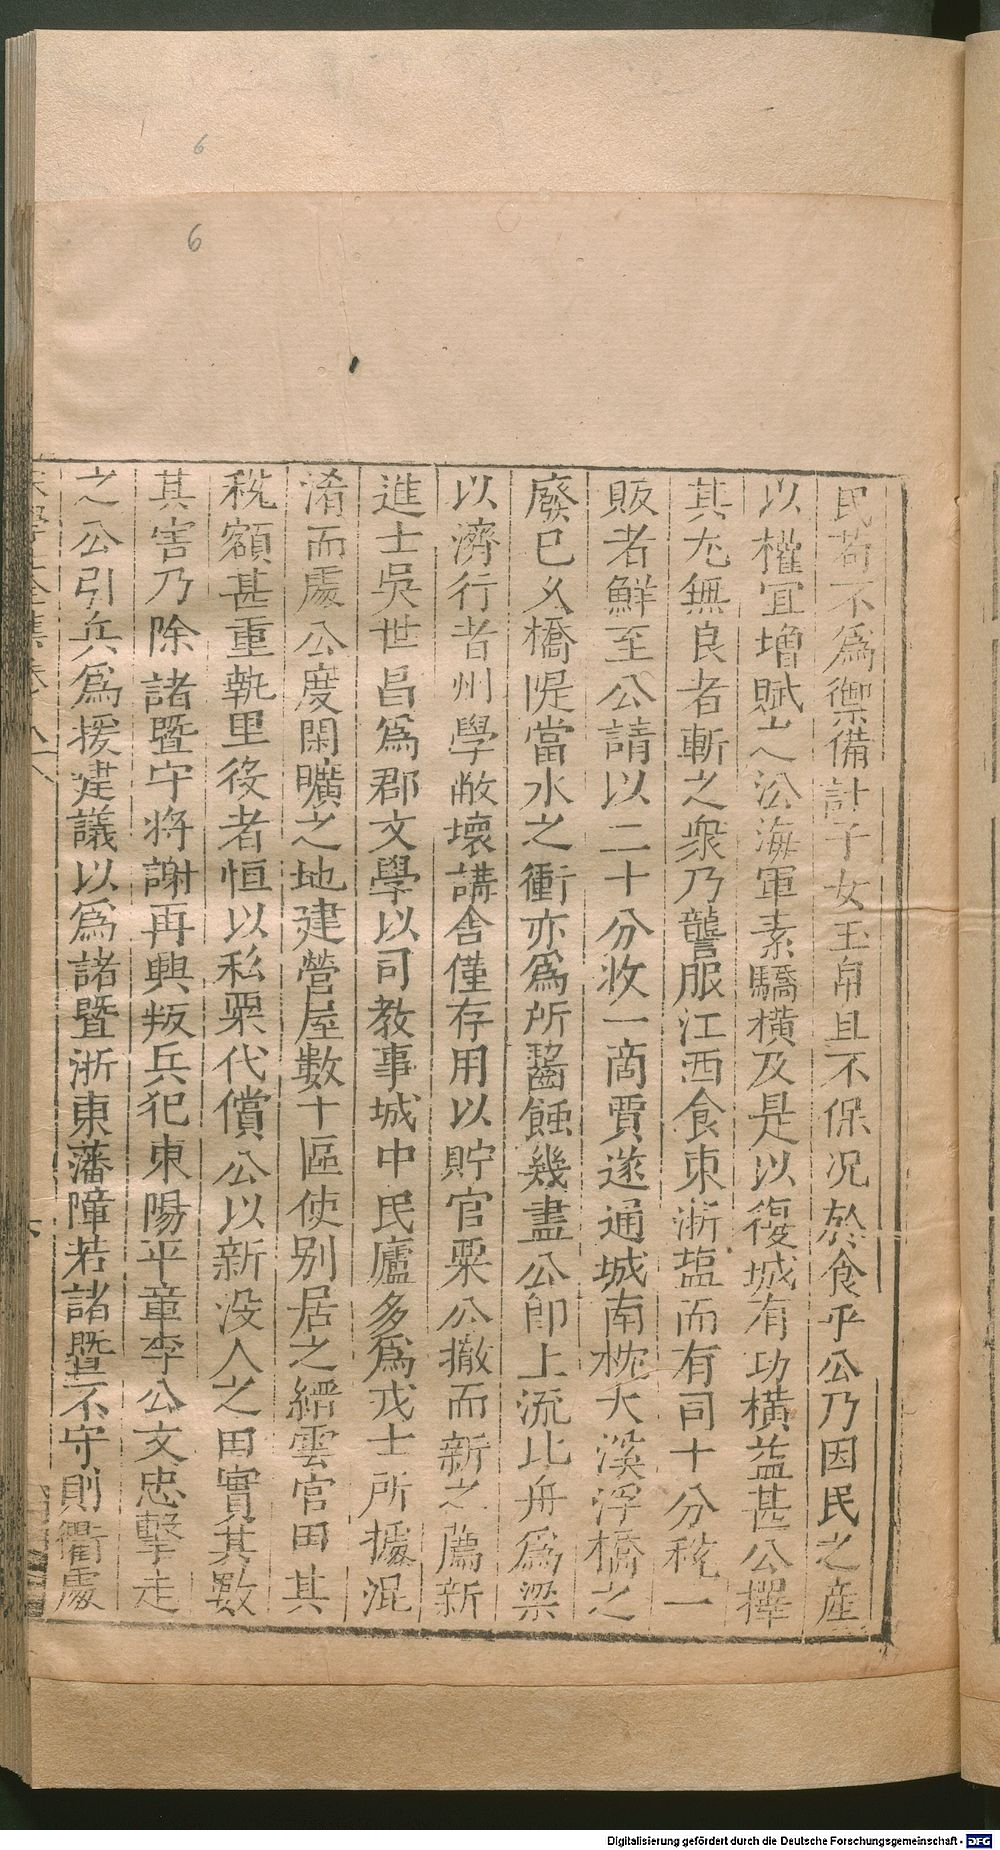 民苟不爲禦備計子女玉帛且不保况於食乎公乃因民之產
以權宜增賦之公海軍素驕橫及是以復城有功橫益甚公擇
其尤無良者斬之衆乃讋服江西食東浙塩而有司十分稅一
販者鮮至公請以二十分收一商賈遂通城南枕大溪浮橋之
廢已久橋隄當水之衝亦爲所齧蝕幾盡公卽上流比舟爲梁
以濟行者州學敝壞講舍僅存用以貯官粟公撤而新之薦新
進士吳世昌爲郡文學以司教事城中民廬多爲戎士所據混
淆而處公度閑曠之地建營屋數十區使別居之縉雲官田其
稅額甚重執里役者恒以私粟代償公以新没人之田實其數
其害乃除諸暨守将謝再興叛兵犯東陽平章李公文忠擊走
之公引兵爲援建議以爲諸暨浙東藩障若諸暨不守則衢處
宋學士全集卷
六
6
6
Digitalisierung gefördert durch die Deutsche Forschungsgemeinschaft - DFG